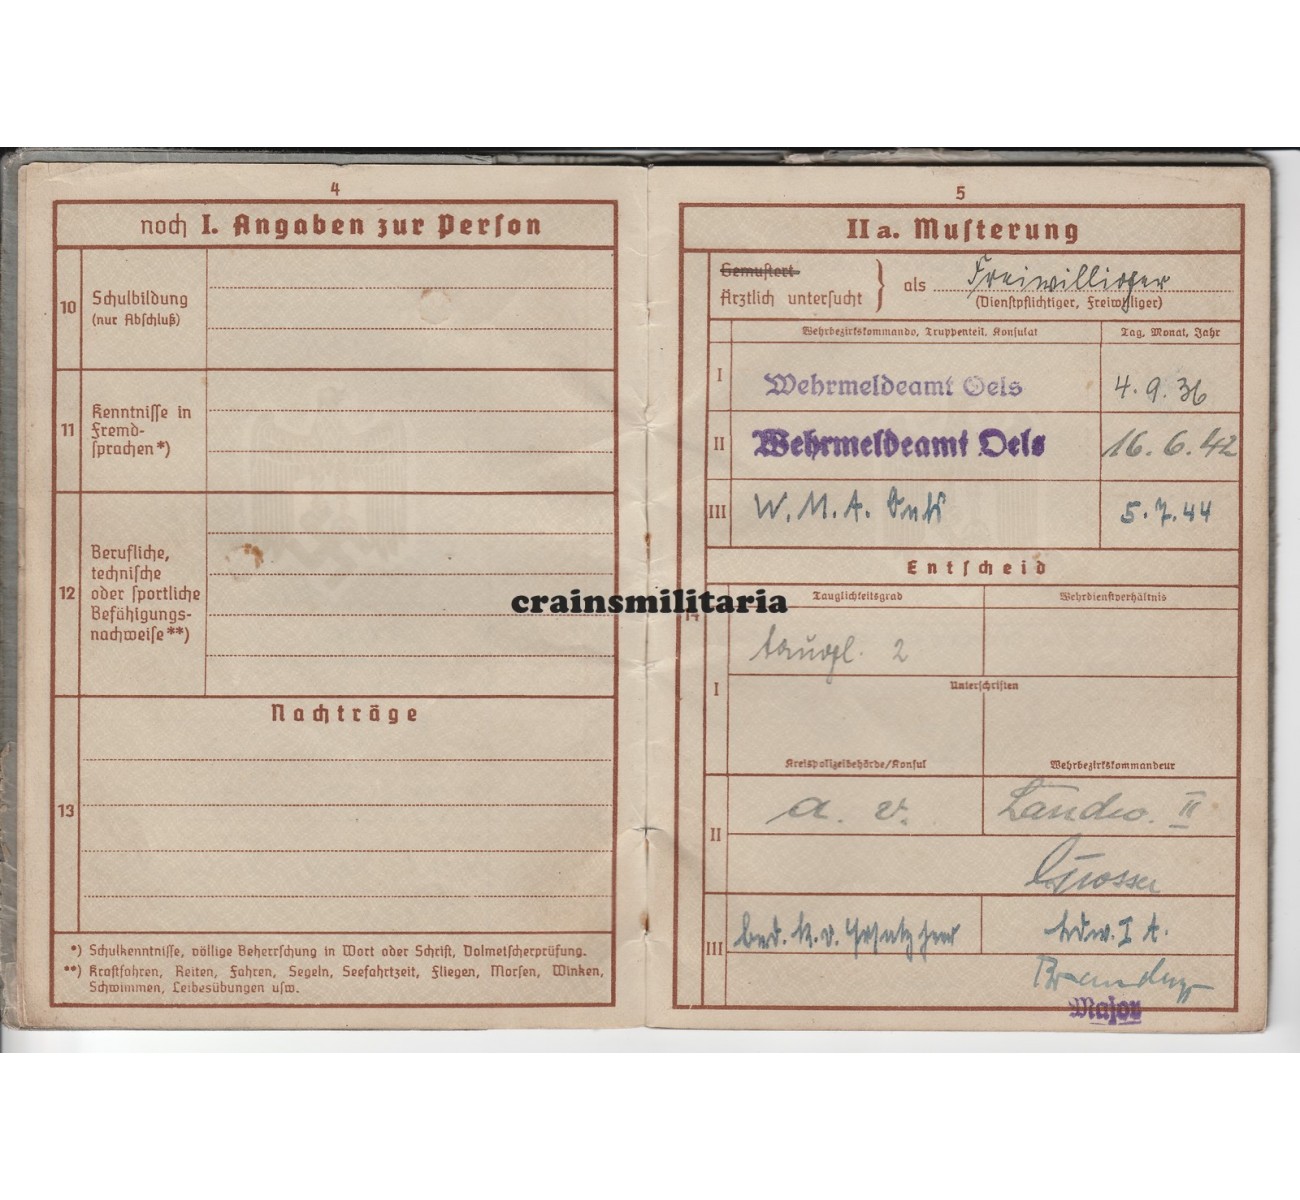 4
noch I. Angaben zur Person
10
Schulbildung
(nur Abschluß)
11
Kenntnisse in
Fremd-
sprachen *)
12
Berufliche,
technische
oder sportliche
Befähigungs-
nachweise **)
Nachträge
13
*) Schulkenntnisse, völlige Beherrschung in Wort oder Schrift, Dolmetscherprüfung.
**) Kraftfahren, Reiten, Fahren, Segeln, Seefahrtzeit, Fliegen, Morsen, Winken,
Schwimmen, Leibesübungen usw.
5
II a. Musterung
Gemustert
Ärztlich untersucht } als Freiwilliger
(Dienstpflichtiger, Freiwilliger)
Wehrbezirkskommando, Truppenteil, Konsulat
Tag, Monat, Jahr
I Wehrmeldeamt Oels 4.9.36
II Wehrmeldeamt Oels 16.6.42
III W.M.A. Oels 5.7.44
Entscheid
14
Tauglichkeitsgrad
Wehrdienstverhältnis
taugl. 2
I
Unterschriften
Kreispolizeibehörde/Konsul
Wehrbezirkskommandeur
II
a. v. Landw. II
Grosser
III
bed. k.v. Ldw. I A.
Major
crainsmilitaria